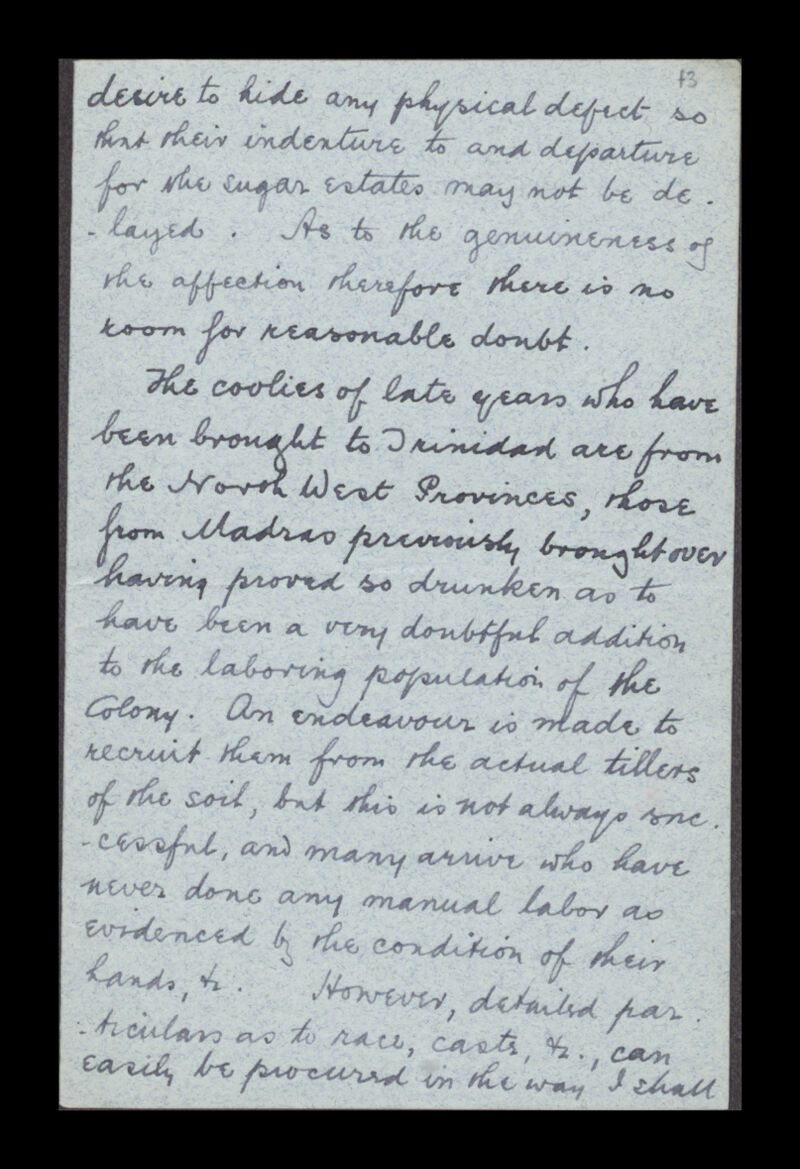 13
desire to hide any physical defect so
that their indenture to and departure
for the sugar estates may not be de -
- layed . As to the genuineness of
the affection therefore there is no
room for reasonable doubt .
The coolies of late years who have
been brought to Trinidad are from
the North West Provinces, those
from Madras previously brought over
having proved so drunken as to
have been a very doubtful addition
to the laboring population of the
Colony. An endeavour is made to
recruit them from the actual tillers
of the soil, but this is not always suc -
- cessful, and many arrive who have
never done any manual labor as
evidenced by the condition of their
hands, &c. However, detailed par -
- ticulars as to race, caste, &c., can
easily be procured in the way I shall